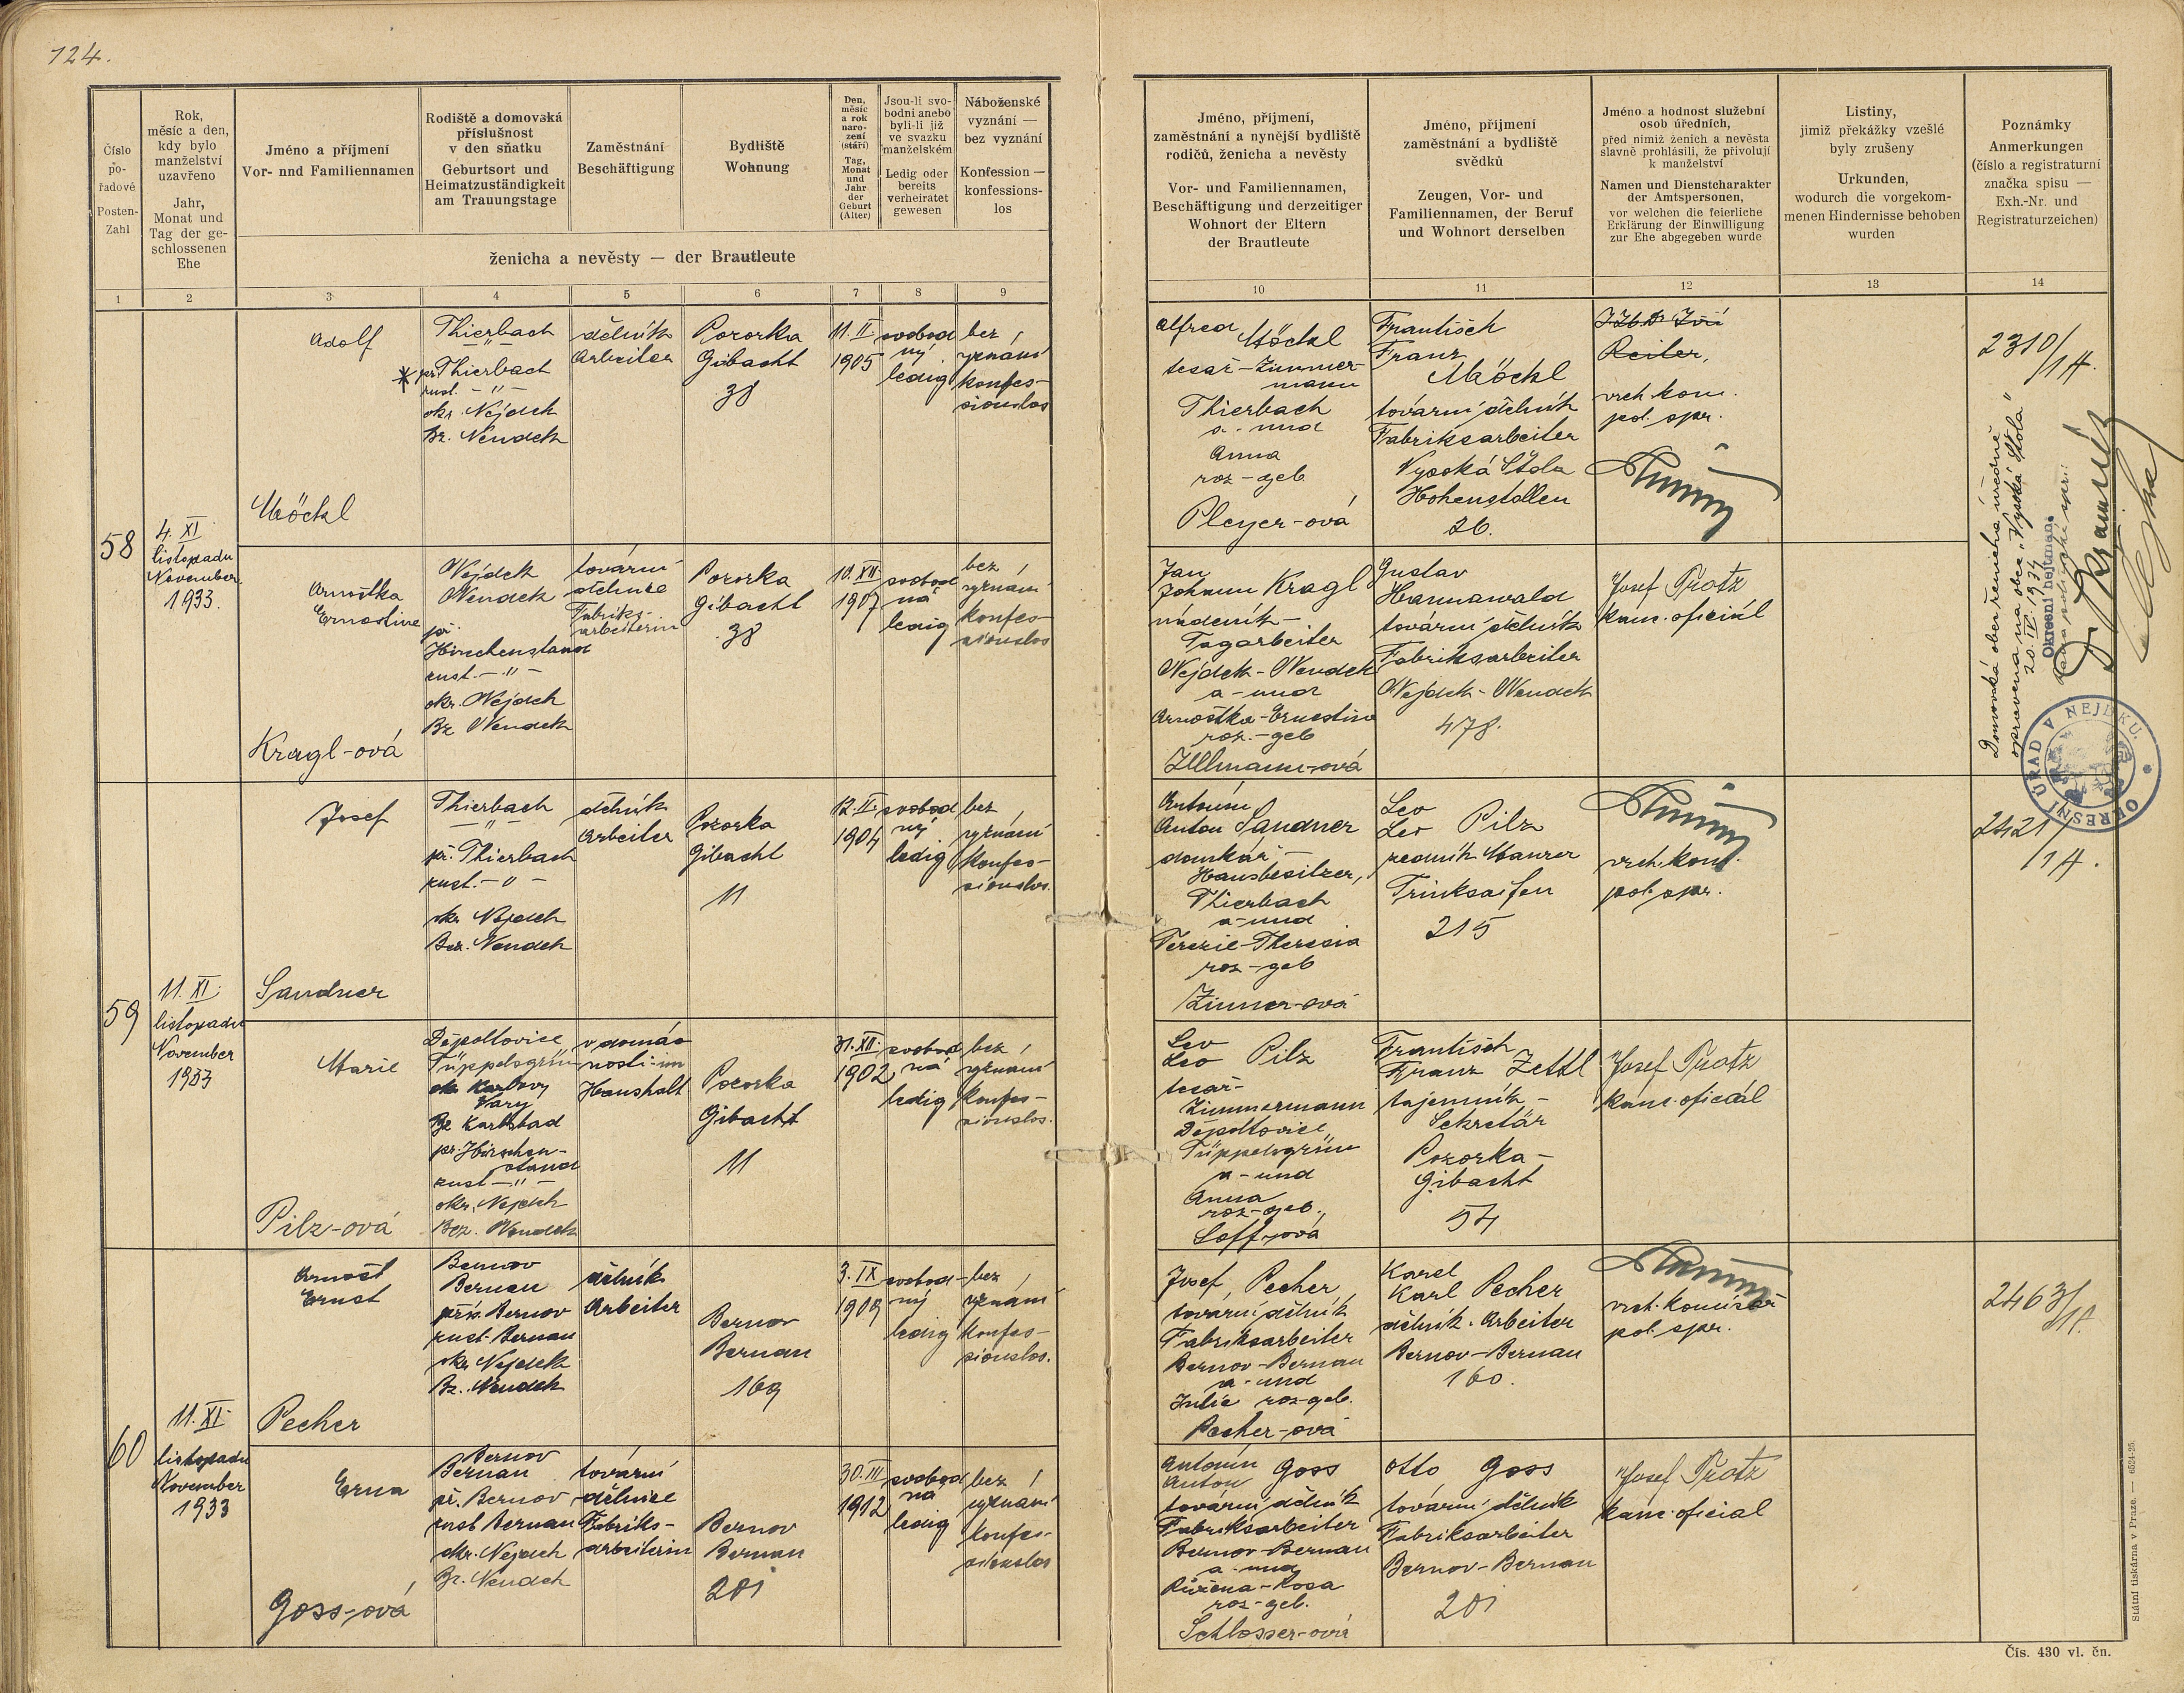 124.
Číslo
po-
řadové
Posten-
Zahl
Rok,
měsíc a den,
kdy bylo
manželství
uzavřeno
Jahr,
Monat und
Tag der ge-
schlossenen
Ehe
Jméno a příjmení
Vor- nnd Familiennamen
Rodiště a domovská
příslušnost
v den sňatku
Geburtsort und
Heimatzuständigkeit
am Trauungstage
Zaměstnání
Beschäftigung
Bydliště
Wohnung
Den,
měsíc
a rok
naro-
zení
(stáří)
Tag,
Monat
und
Jahr
der
Geburt
(Alter)
Jsou-li svo-
bodni anebo
byli-li již
ve svazku
manželském
Ledig oder
bereits
verheiratet
gewesen
Náboženské
vyznání —
bez vyznání
Konfession —
konfessions-
los
ženicha a nevěsty — der Brautleute
Jméno, příjmení,
zaměstnání a nynější bydliště
rodičů, ženicha a nevěsty
Vor- und Familiennamen,
Beschäftigung und derzeitiger
Wohnort der Eltern
der Brautleute
Jméno, příjmení
zaměstnání a bydliště
svědků
Zeugen, Vor- und
Familiennamen, der Beruf
und Wohnort derselben
Jméno a hodnost služební
osob úředních,
před nimiž ženich a nevěsta
slavně prohlásili, že přivolují
k manželství
Namen und Dienstcharakter
der Amtspersonen,
vor welchen die feierliche
Erklärung der Einwilligung
zur Ehe abgegeben wurde
Listiny,
jimiž překážky vzešlé
byly zrušeny
Urkunden,
wodurch die vorgekom-
menen Hindernisse behoben
wurden
Poznámky
Anmerkungen
(číslo a registraturní
značka spisu —
Exh.-Nr. und
Registraturzeichen)
1 2 3 4 5 6 7 8 9 10 11 12 13 14
58
4. XI.
listopadu
November
1933.
Adolf
Möckl
Thierbach
— " —
* př. Thierbach
zust. — " —
okr. Nejdek
Bz. Neudek
dělník
Arbeiter
Pozorka
Gibacht
38
11. II.
1905
svobod
ný
ledig
bez
vyznání
konfes-
sionslos
Alfred Möckl
tesař - Zimmer-
mann
Thierbach
a - und
Anna
roz - geb
Pleyer-ová
František
Franz
Möckl
tovární dělník
Fabriksarbeiter
Vysoká Štola
Hohenstollen
26.
JUDr Jiří
Reiter,
vrch. kom.
pol. spr.
2310/14.
Arnoštka
Ernestine
Kragl-ová
Nejdek
Neudek
př.
Hirschenstand
zust. — " —
okr. Nejdek
Bz Neudek
tovární
dělnice
Fabriks-
arbeiterin
Pozorka
Gibacht
38
10. XII.
1907
svobod
ná
ledig
bez
vyznání
konfes-
sionslos
Jan
Johann Kragl
nádeník -
Tagarbeiter
Nejdek - Neudek
a - und
Arnoštka - Ernestine
roz. - geb
Ullmann-ová
Gustav
Hannawald
tovární dělník
Fabriksarbeiter
Nejdek - Neudek
478.
Josef Protz
kanc. oficiál
Domovská obec ženicha úředně
opravena na obec „Vysoká Štola"
20. IV. 1934
Okresní hejtman:
OKRESNÍ ÚŘAD V NEJDKU.
59
11. XI.
listopadu
November
1933
Josef
Sandner
Thierbach
— " —
př. Thierbach
zust. — " —
okr. Nejdek
Bez. Neudek
dělník
Arbeiter
Pozorka
Gibacht
11
12. II.
1904
svobod
ný
ledig
bez
vyznání
konfes-
sionslos.
Antonín
Anton Sandner
domkář -
Hausbesitzer,
Thierbach
a - und
Terezie - Theresia
roz - geb
Zinner-ová
Leo
Leo Pilz
zedník Maurer
Trinksaifen
215
vrch. kom.
pol. spr.
2421/14.
Marie
Pilz-ová
Děpoltovice
Tüppelsgrün
okr. Karlovy
Vary
Bz Karlsbad
př. Hirschen-
stand
zust — " —
okr. Nejdek
Bez. Neudek
v domác
nosti - im
Haushalt
Pozorka
Gibacht
11
31. XII.
1902
svobod
ná
ledig
bez
vyznání
konfes-
sionslos.
Leo
Leo Pilz
tesař -
Zimmermann
Děpoltovice
Tüppelsgrün
a - und
Anna
roz - geb.,
Loff-ová
František
Franz Zettl
tajemník -
Sekretär
Pozorka -
Gibacht
54
Josef Protz
kanc. oficiál
60
11. XI.
listopadu
November
1933
Arnošt
Ernst
Pecher
Bernov
Bernau
přís. Bernov
zust. Bernau
okr. Nejdek
Bz. Neudek
dělník
Arbeiter
Bernov
Bernau
169
3. IX
1909
svobod
ný
ledig
bez
vyznání
konfes-
sionslos.
Josef Pecher
tovární dělník
Fabriksarbeiter
Bernov - Bernau
a - und
Julie roz-geb.
Pecher-ová
Karel
Karl Pecher
dělník. Arbeiter
Bernov - Bernau
160.
vrch. komisař
pol. spr.
2463/14.
Erna
Goss-ová
Bernov
Bernau
př. Bernov
zust Bernau
okr. Nejdek
Bz. Neudek
tovární
dělnice
Fabriks-
arbeiterin
Bernov
Bernau
201
30. III
1912
svobod
ná
ledig
bez
vyznání
konfes-
sionslos
Antonín Goss
Anton
tovární dělník
Fabriksarbeiter
Bernov - Bernau
a - und
Růžena - Rosa
roz - geb.
Schlosser-ová
Otto Goss
tovární dělník
Fabriksarbeiter
Bernov - Bernau
201
Josef Protz
kanc. oficial
Státní tiskárna v Praze. — 6524-25.
Čís. 430 vl. čn.